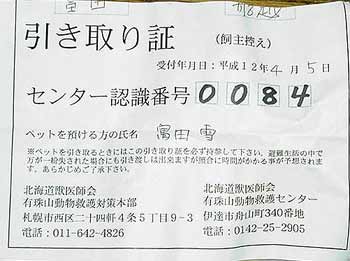 引き取り証 (飼主控え)
受付年月日：平成12年4月5日
センター認識番号 0084
ペットを預ける方の氏名 富田 雪
※ペットを引き取るときにはこの引き取り証を必ず持参して下さい。避難生活の中で
万が一紛失された場合にも引き渡しは出来ますが照合に時間がかかる事が予想されま
す、あらかじめご了承下さい。
北海道獣医師会
有珠山動物救護対策本部
札幌市西区二十四軒4条5丁目9－3
電話：011-642-4826
北海道獣医師会
有珠山動物救護センター
伊達市舟山町340番地
電話：0142-25-2905